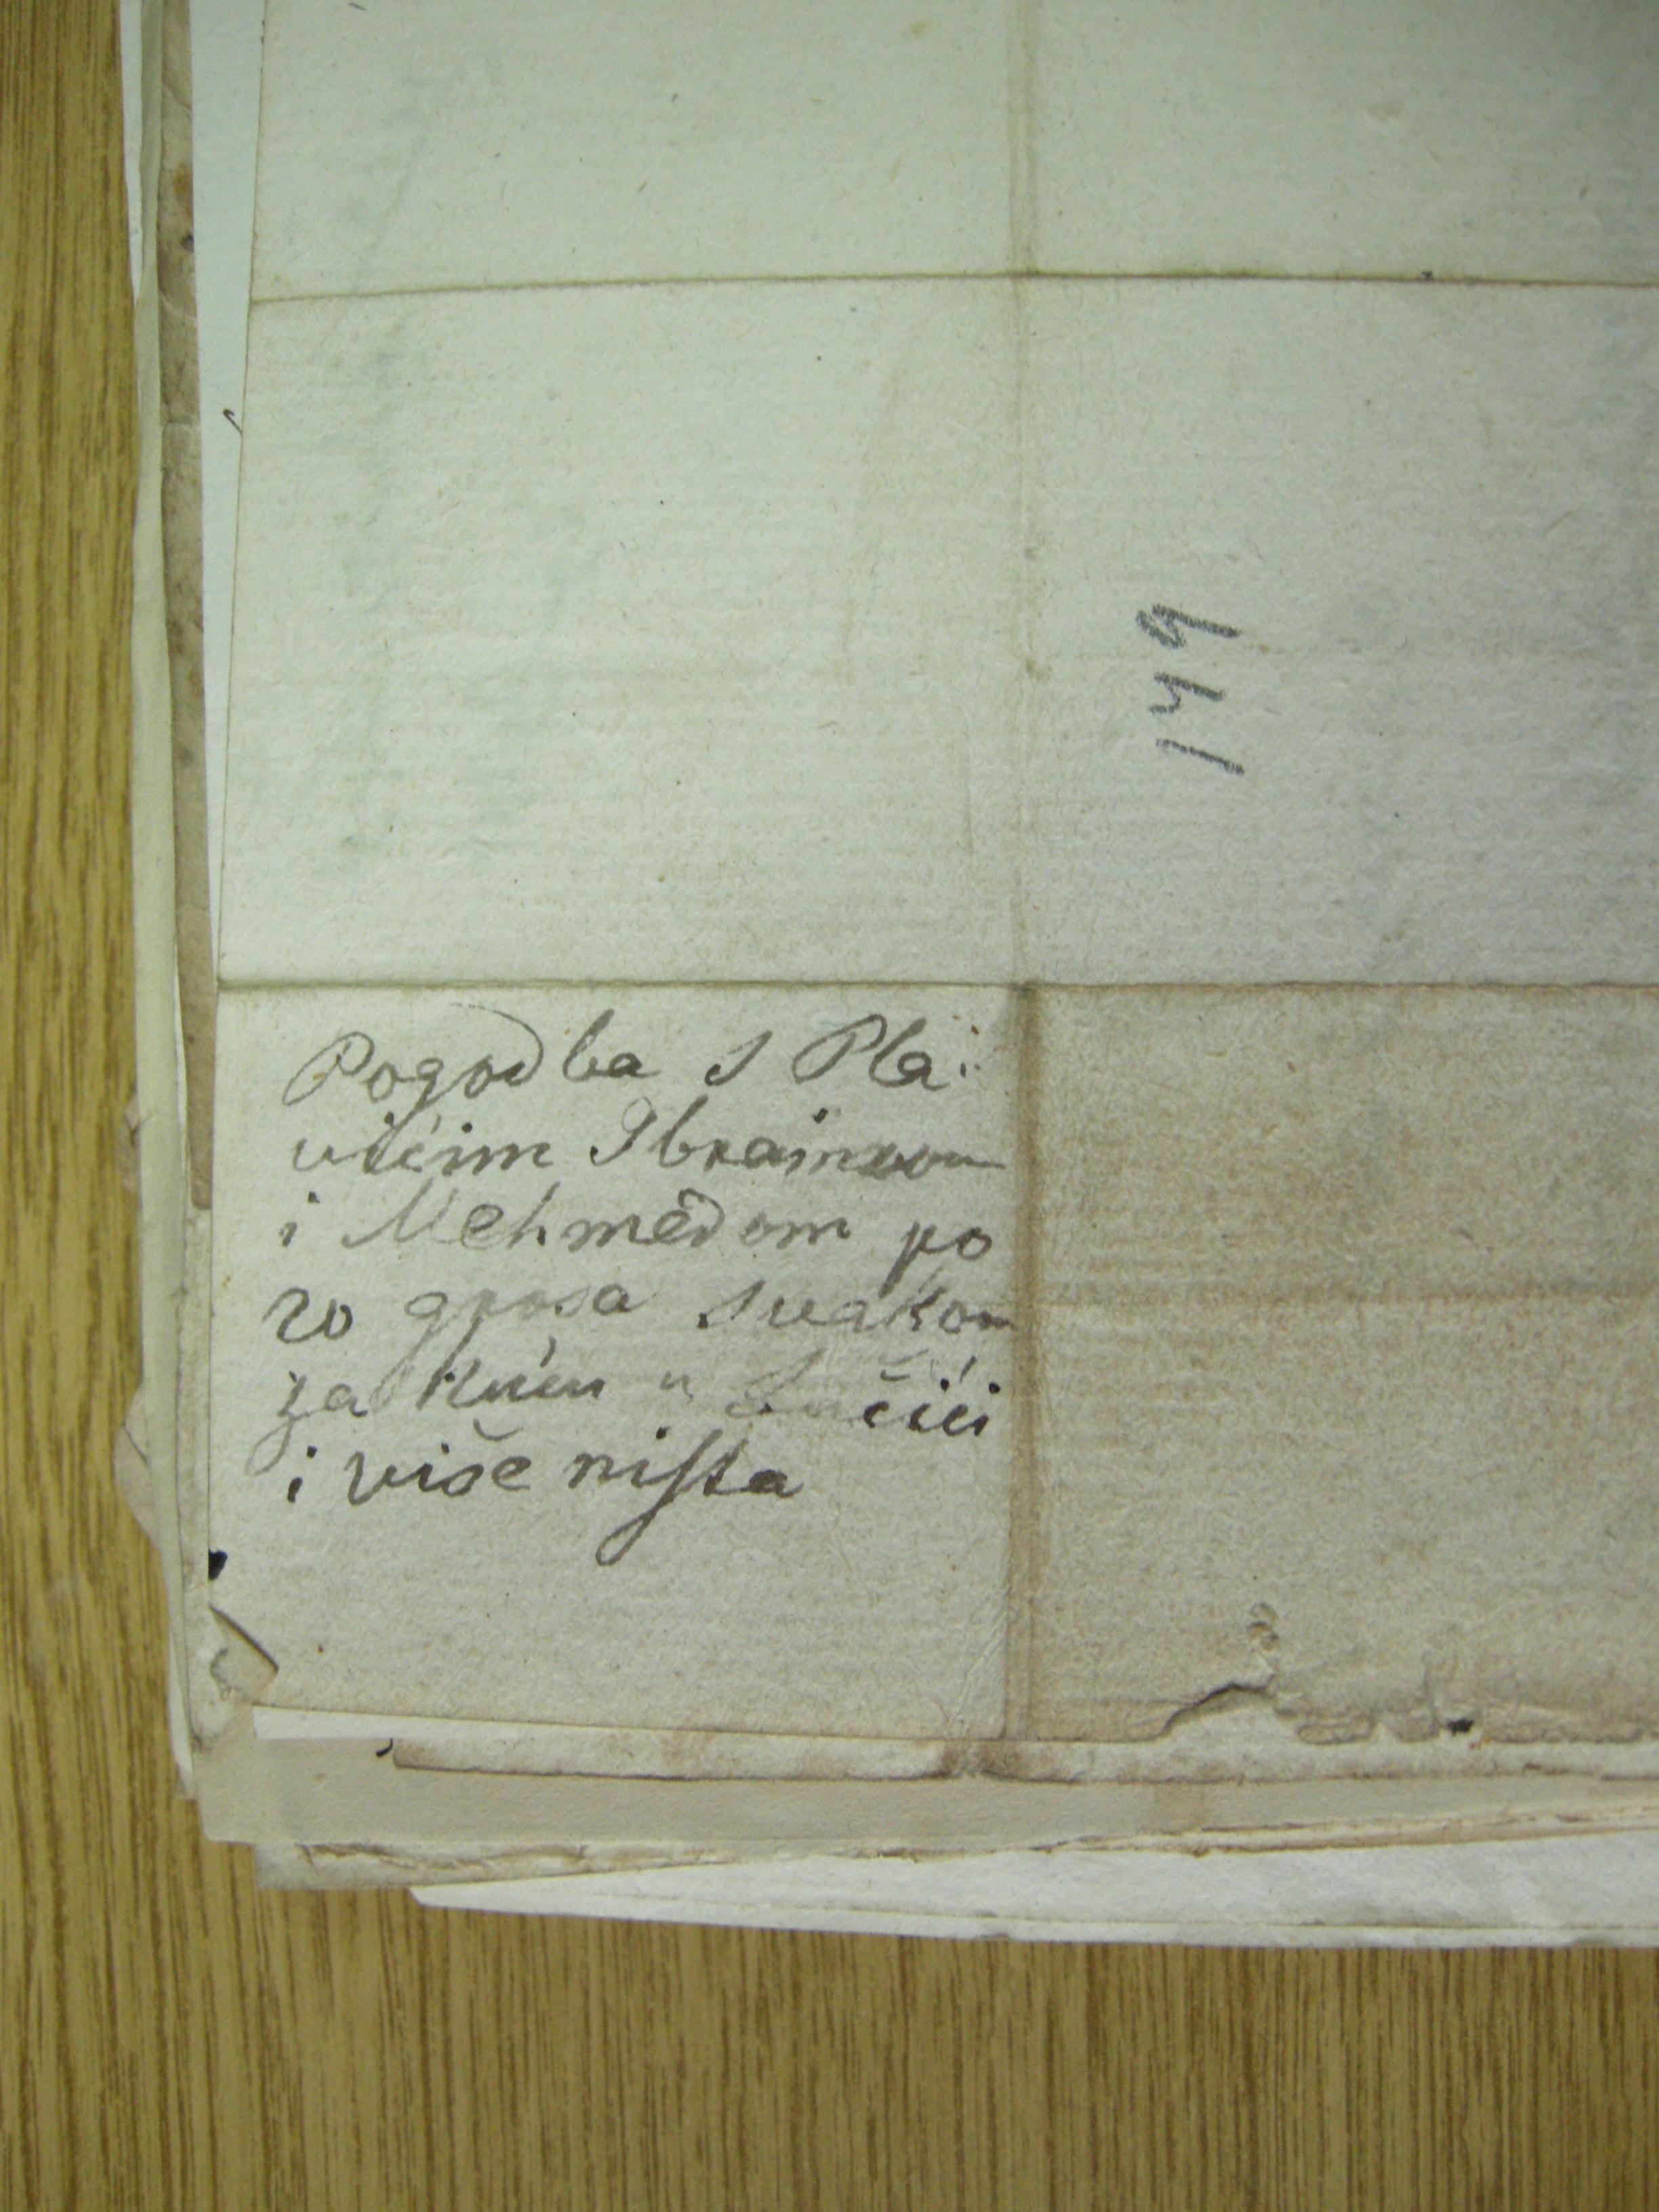 149
Pogodba s Pla:
vićim Ibraimom
i Mehmedom po
20 grosa svakom
za kuću u
i više nista